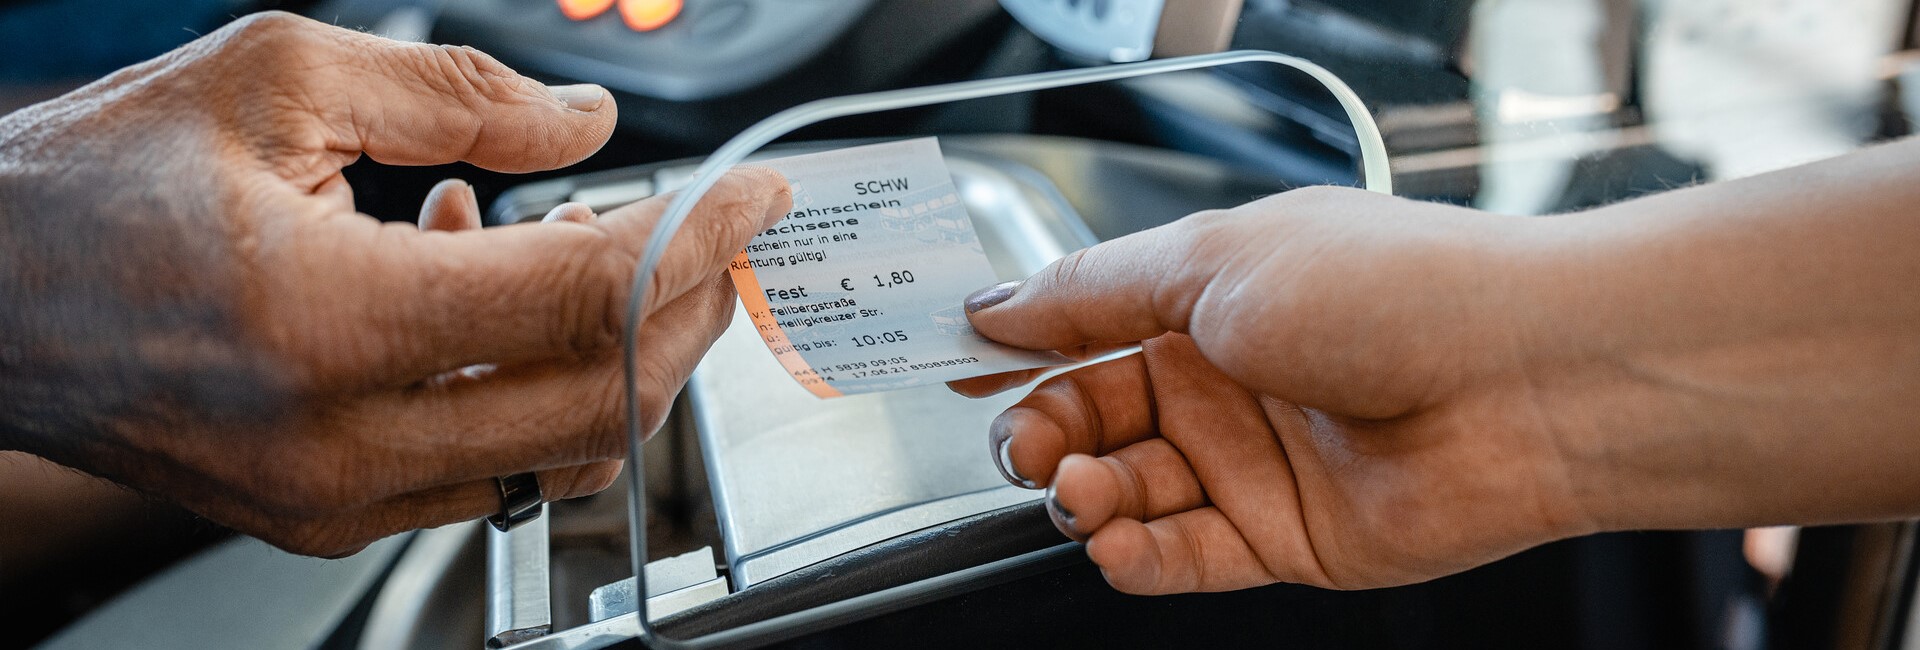 SCHW
fahrschein
wachsene
hrschein nur in eine
Richtung gültig!
Fest € 1,80
v: Feilbergstraße
n: Heiligkreuzer Str.
ü:
gültig bis: 10:05
443 H 5839 09:05
0974 17.06.21 850858503